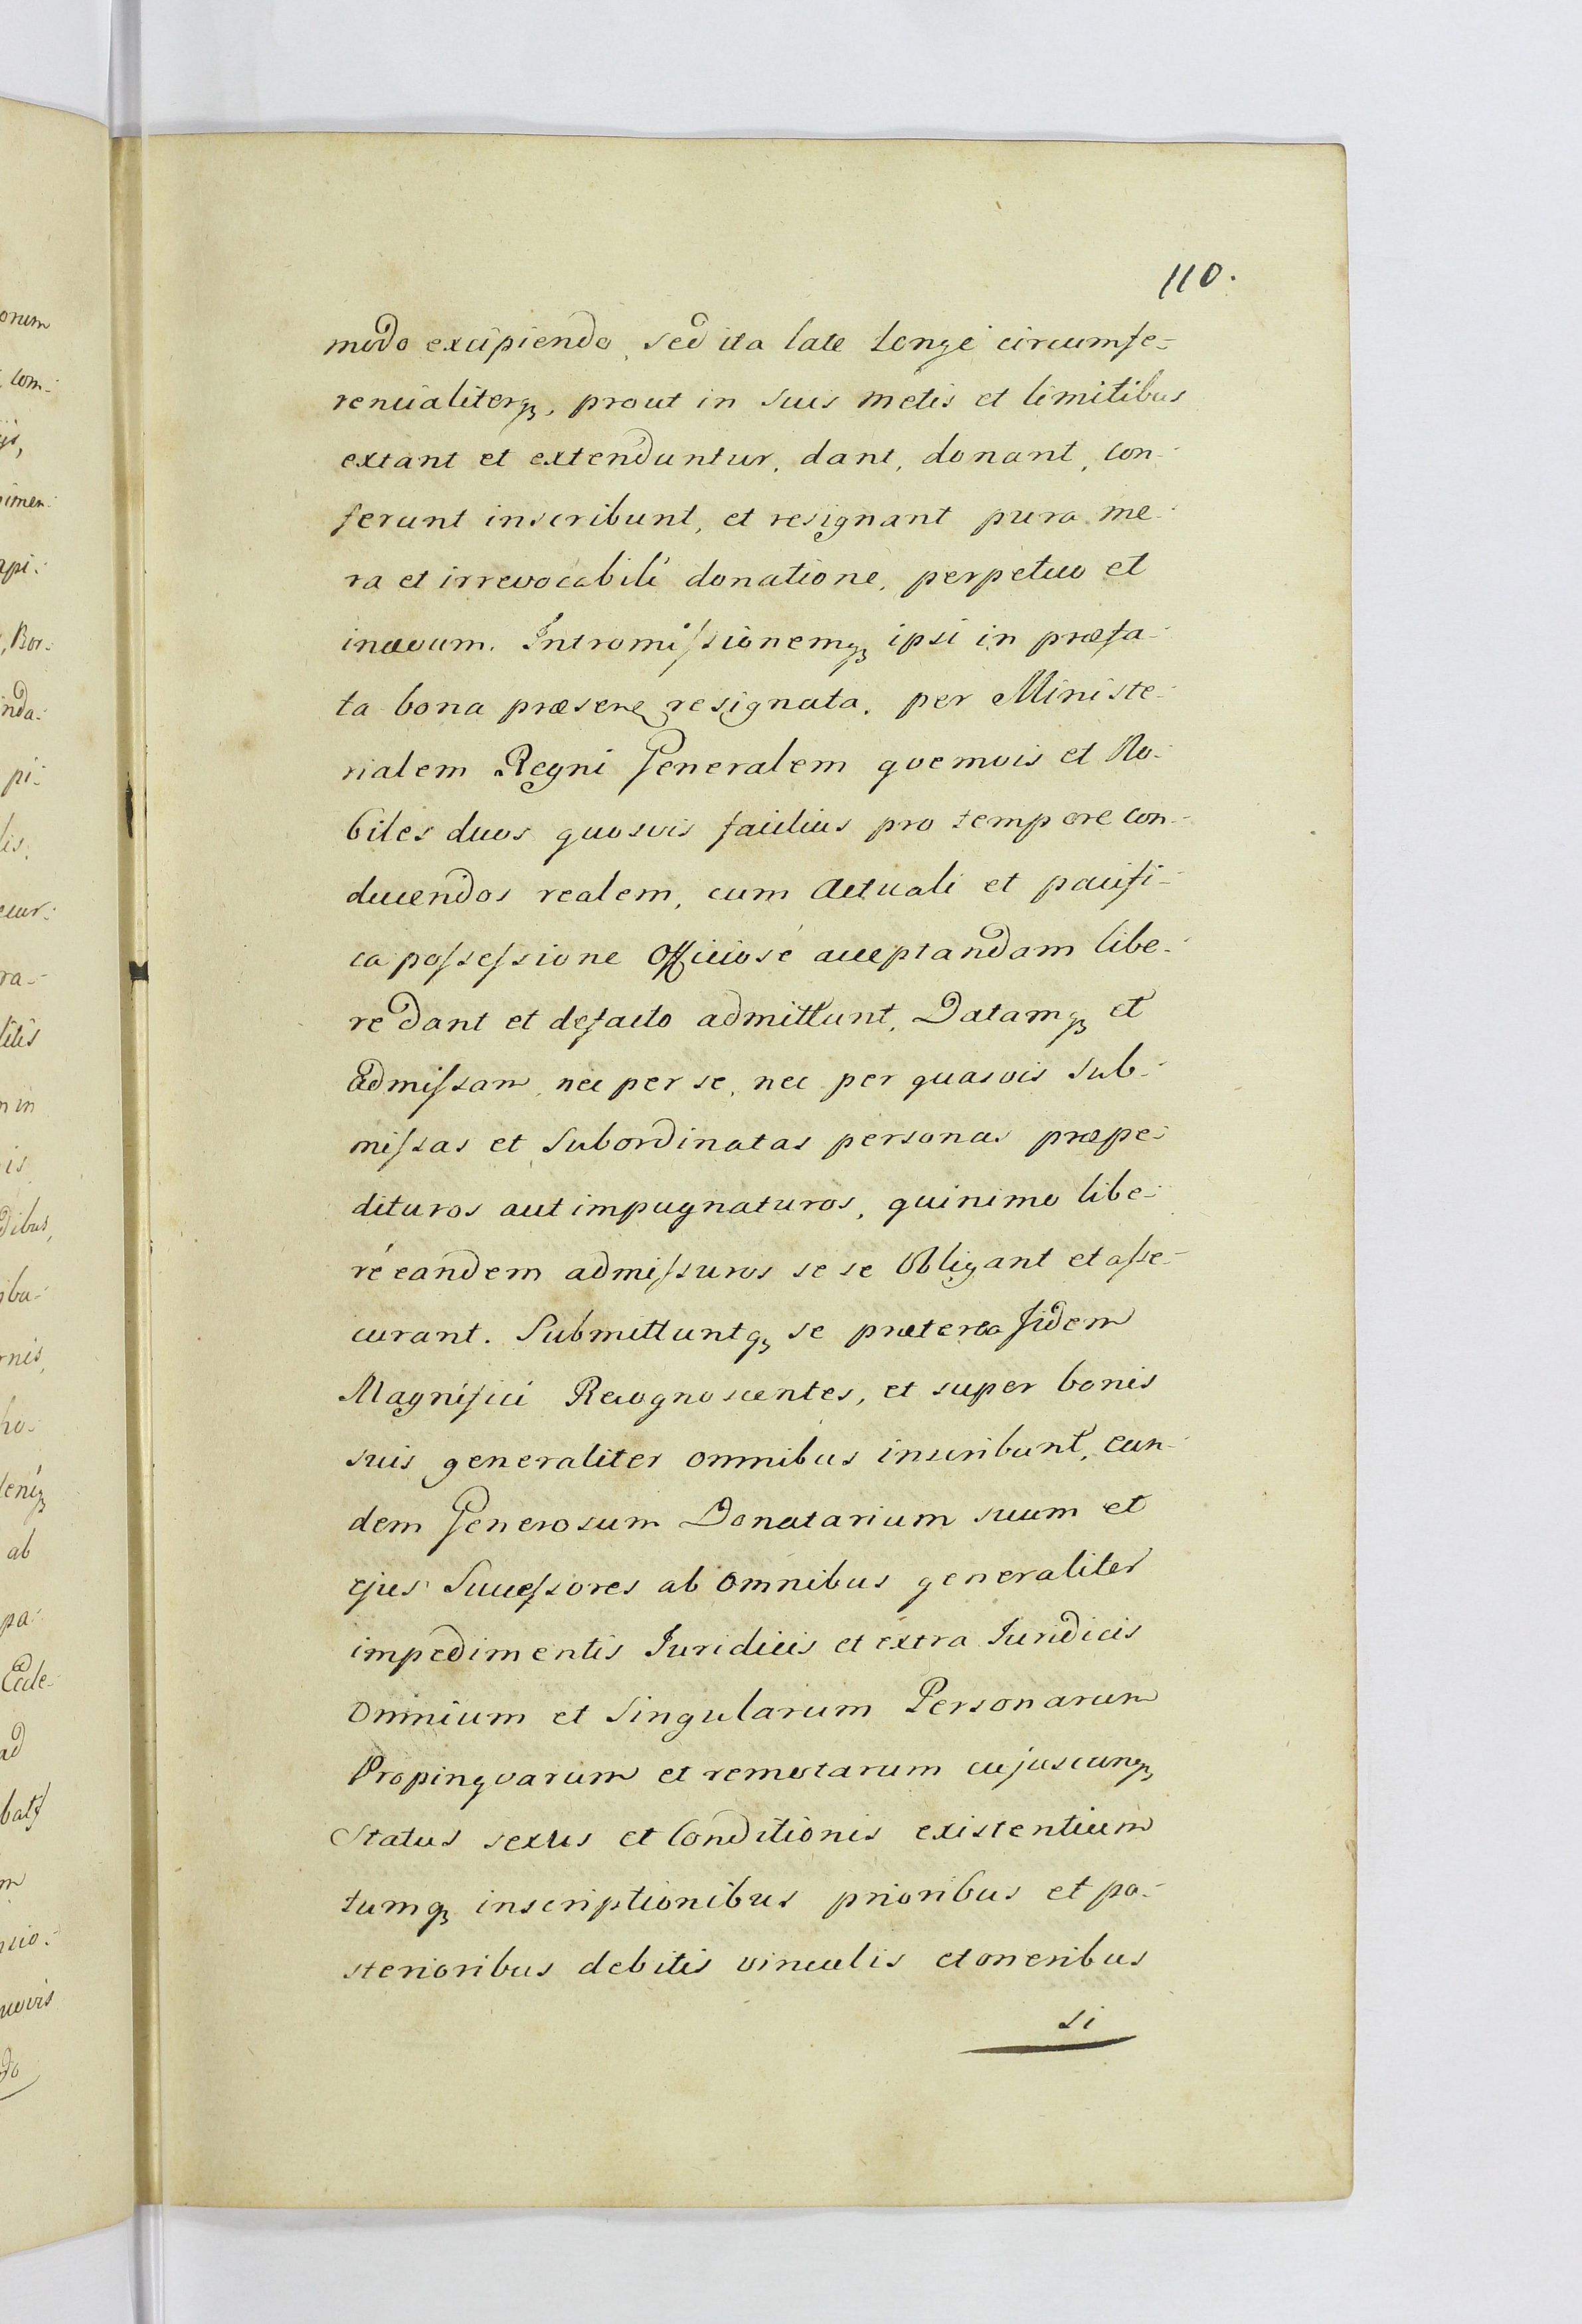 110.
modo excipiendo, sed ita late longe circumfe-
rencialiterq3, prout in suis metis et limitibus
extant et extenduntur, dant, donant, con-
ferunt inscribunt, et resignant pura me-
ra et irrevocabili donatione, perpetuo et
inaevum. Intromissionemq3 ipsi in praefa-
ta bona praesene resignata, per Ministe-
rialem Regni Generalem quemvis et No-
biles duos quosvis facilius pro tempore con-
ducendos realem, cum Actuali et pacifi-
ca possessione Officiosé acceptandam libe-
re dant et defacto admittunt, Datamq3 et
admissam, nec per se, nec per quasvis sub-
missas et subordinatas personas praepe-
dituros aut impugnaturos, quinimo libe-
ré eandem admissuros se se Obligant et asse-
curant. Submittuntq3 se praeterea Iidem
Magnifici Recognoscentes, et super bonis
suis generaliter omnibus inscribunt, eun-
dem Generosum Donatarium suum et
ejus Successores ab omnibus generaliter
impedimentis Iuridicis et extra Iuridicis
Omnium et Singularum Personarum
Propinqvarum et remotarum cujuscunq3
Status sexus et Conditionis existentium
tumq3 inscriptionibus prioribus et po-
sterioribus debitis vinculis et oneribus
si
onum
com-
imen-
api-
Bor-
nda-
pi-
lis,
ra-
litis
in
is
dibus,
nis,
ho-
ab
pa-
Eccle-
ad